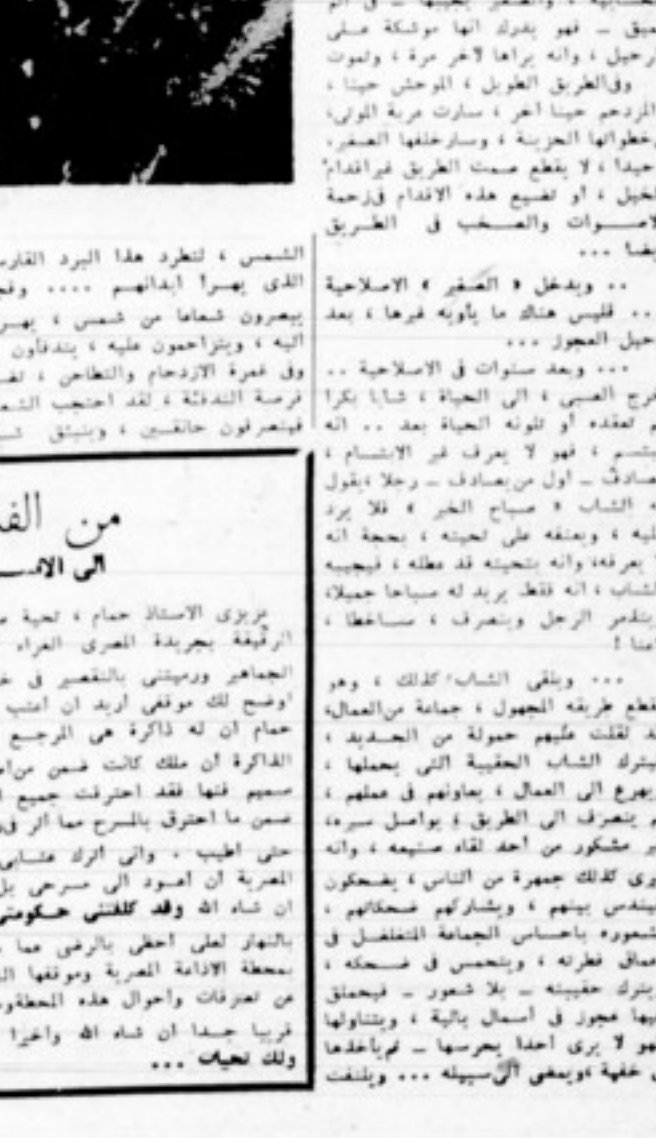 عميق – فهو يدرك انها موشكة على
رحيل ، وانه يراها لاخر مرة ، وتموت
وفى الطريق الطويل ، الموحش حينا ،
المزدحم حينا آخر ، سارت عربة الموتى،
خطواتها الحزينة ، وسار خلفها الصغير،
حيدا ، لا يقطع صمت الطريق غير اقدام
لخيل ، أو تضيع هذه الاقدام فى زحمة
لاصوات والصخب فى الطريق
يضا ...
.. ويدخل « الصغير » الاصلاحية
.. فليس هناك ما يأويه غيرها ، بعد
حيل العجوز ...
... وبعد سنوات فى الاصلاحية ..
خرج الصبى ، الى الحياة ، شابا بكرا
م تعقده أو تلونه الحياة بعد .. انه
بتسم ، فهو لا يعرف غير الابتسام ،
صادف – أول من يصادف – رجلا ،يقول
ه الشاب « صباح الخير » فلا يرد
ليه ، ويعنفه على تحيته ، بحجة انه
ا يعرفه، وانه بتحيته قد عطله ، فيجيبه
لشاب ، انه فقط يريد له صباحا جميلا،
يتذمر الرجل وينصرف ، ساخطا ،
اعنا !
... ويلقى الشاب كذلك ، وهو
قطع طريقه المجهول ، جماعة من العمال،
د ثقلت عليهم حمولة من الحديد ،
يترك الشاب الحقيبة التى يحملها ،
يهرع الى العمال ، يعاونهم فى عملهم ،
م ينصرف الى الطريق ، يواصل سيره،
ير مشكور من أحد لقاء صنيعه ، وانه
يرى كذلك جمهرة من الناس ، يضحكون
يندس بينهم ، ويشاركهم ضحكاتهم ،
شعوره باحساس الجماعة المتغلغل فى
عماق فطرته ، ويتحمس فى ضحكه ،
يترك حقيبته – بلا شعور – فيحملق
يها عجوز فى أسمال بالية ، ويتناولها
هو لا يرى أحدا يحرسها – ثم يأخذها
خفية ،ويمضى الى سبيله ... ويلتفت
الشمس ، لتطرد هذا البرد القارس
الذى يهرأ ابدانهم ....
يبصرون شعاعا من شمس ،
اليه ، ويتزاحمون عليه ، يتدفأون
وفى غمرة الازدحام والتطاحن ،
فرصة التدفئة ، لقد احتجب
فينصرفون حانقين ، وينبثق
من
الى
عزيزى الاستاذ حمام ، تحية
الرقيقة بجريدة المصرى الغراء
الجماهير ورميتنى بالتقصير فى
أوضح لك موقفى أريد ان أعتب
حمام ان له ذاكرة هى المرجع
الذاكرة ان ملك كانت ضمن
صميم فنها فقد احترقت جميع
ضمن ما احترق بالمسرح مما أثر
حتى اطيب . وانى أترك
المصرية ان أعود الى مسرحى
ان شاء الله وقد كلفتنى
بالنهار لعلى أحظى بالرضى عما
بمحطة الاذاعة المصرية وموقفها
عن تصرفات وأحوال هذه
قريبا جدا ان شاء الله وأخيرا
ولك تحيات ...